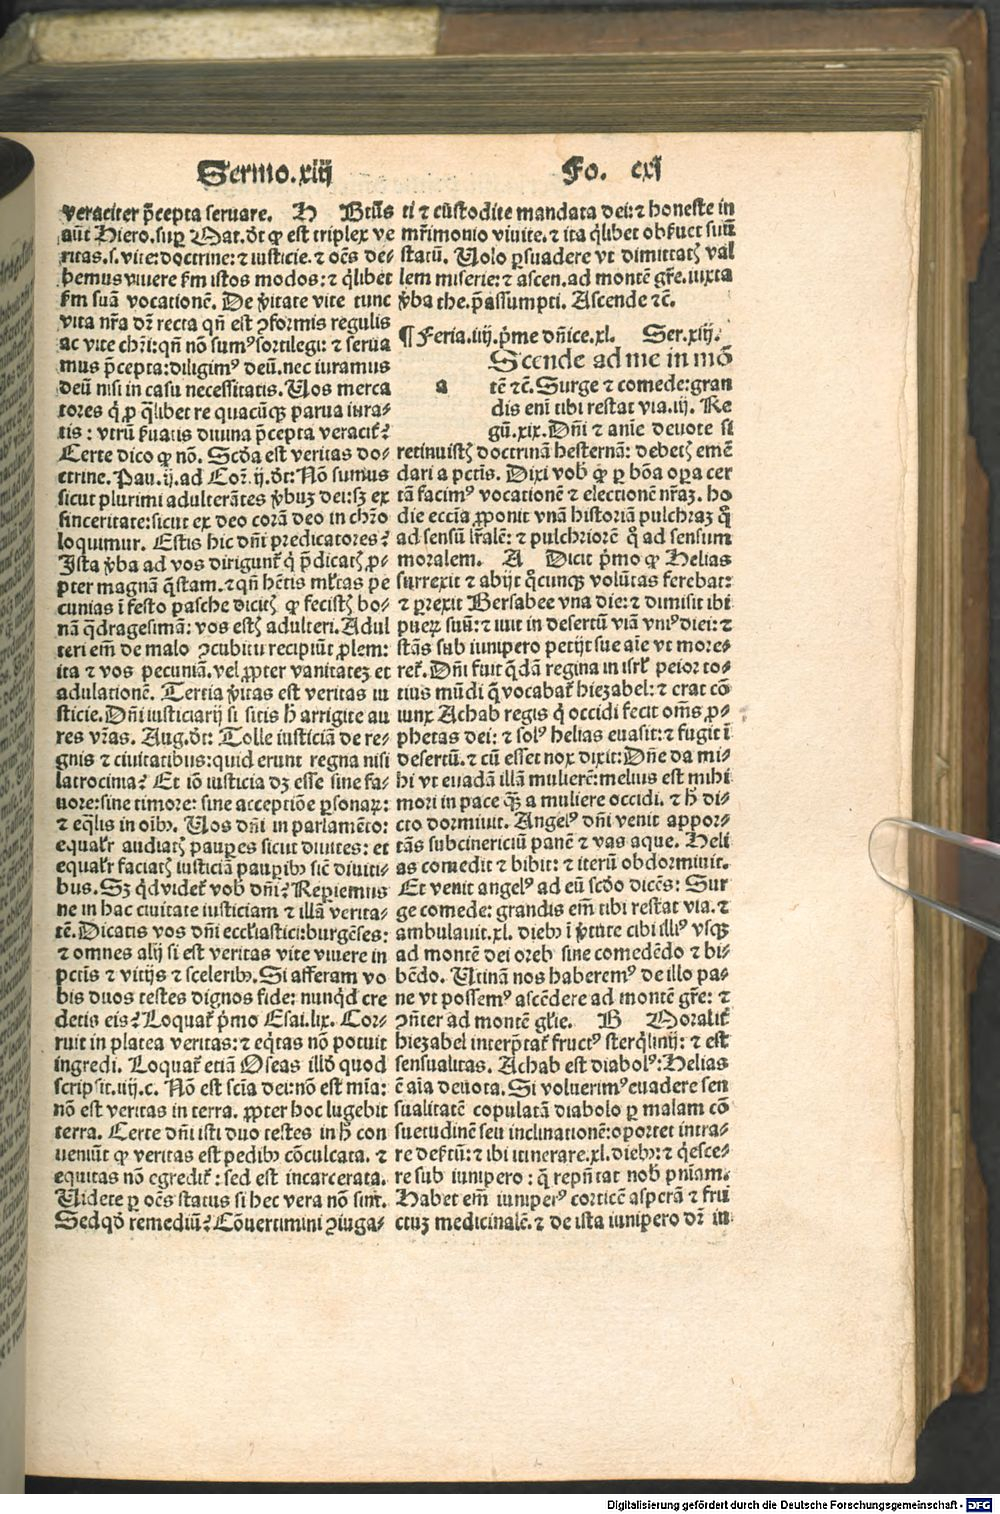 Sermo.xiij Fo. cxj
veraciter p̄cepta seruare. H Btūs
aūt Hiero.suꝑ Mat.dt̄ ꝙ est triplex ve
ritas.s.vite:doctrine:⁊ iusticie.⁊ oēs de⸗
bemus viuere ẜm istos modos:⁊ q̄libet
ẜm suā vocationē. De v̄itate vite tunc
vita nr̄a dr̄ recta qn̄ est ꝯformis regulis
ac vite chr̄i:qn̄ nō sumꝰ sortilegi: ⁊ serua
mus p̄cepta:diligimꝰ deū.nec iuramus
deū nisi in casu necessitatis. Uos merca
tores q̇ ꝓ q̄libet re quacūqꝫ parua iura⸗
tis: vtrū ẜuatis diuina p̄cepta veracit̄?
Certe dico ꝙ nō. Scd̄a est veritas do⸗
ctrine. Pau.ij.ad Cor̄.ij.dt̄: Nō sumus
sicut plurimi adulterātes v̄buꝫ dei:sꝫ ex
sinceritate:sicut ex deo corā deo in chr̄o
loquimur. Estis hic dn̄i predicatores?
Ista v̄ba ad vos dirigunt̄ q̇ p̄dicatꝭ ꝓ⸗
pter magnā q̄stam.⁊ qn̄ hētis ml̄tas pe
cunias ī festo pasche dicitꝭ ꝙ fecistꝭ bo⸗
nā q̄dragesimā: vos estꝭ adulteri. Adul
teri em̄ de malo ꝯcubitu recipiūt ꝓlem:
ita ⁊ vos pecuniā.vel ꝓpter vanitateꝫ et
adulationē. Tertia v̄itas est veritas iu
sticie. Dn̄i iusticiarij si sitis h̄ arrigite au
res vr̄as. Aug.dt̄: Tolle iusticiā de re⸗
gnis ⁊ ciuitatibus:quid erunt regna nisi
latrocinia? Et iō iusticia dꝫ esse sine fa⸗
uore:sine timore: sine acceptiōe ꝑsonaꝝ:
⁊ eq̄lis in oībꝰ. Uos dn̄i in parlamēto:
equalr̄ audiatꝭ pauꝑes sicut diuites: et
equalr̄ faciatꝭ iusticiā pauꝑibꝰ sic̄ diuiti⸗
bus. Sꝫ qd̓ videt̄ vob̓ dn̄i? Reperiemus
ne in hac ciuitate iusticiam ⁊ illā verita⸗
tē. Dicatis vos dn̄i eccl̓iastici:burgēses:
⁊ omnes alij si est veritas vite viuere in
pctīs ⁊ vitijs ⁊ sceleribꝰ. Si afferam vo
bis duos testes dignos fide: nunqd̓ cre
detis eis? Loquat̄ p̄mo Esai.lix. Cor⸗
ruit in platea veritas:⁊ eq̇tas nō potuit
ingredi. Loquat̄ etiā Oseas illd̓ quod
scripsit.iiij.c. Nō est scīa dei:nō est mīa:
nō est veritas in terra. ꝓpter hoc lugebit
terra. Certe dn̄i isti duo testes in h̄ con
ueniūt ꝙ veritas est pedibꝰ cōculcata. ⁊
equitas nō egredit̄: sed est incarcerata.
Uidete ꝑ oēs status si hec vera nō sint.
Sed qd̓ remediū? Cōuertimini ꝯiuga⸗
ti ⁊ cūstodite mandata dei:⁊ honeste in
mr̄imonio viuite.⁊ ita q̄libet obẜuet suū
statū. Uolo ꝑsuadere vt dimittatꝭ val
lem miserie:⁊ ascen.ad montē gr̄e.iuxta
v̄ba the.p̄assumpti. Ascende ⁊c̄.
¶ Feria.iiij.p̄me dn̄ice.xl. Ser.xiij.
a Scende ad me in mō
tē ⁊c̄. Surge ⁊ comede:gran
dis eni tibi restat via.iij. Re
gū.xix. Dn̄i ⁊ aīe deuote si
retinuistꝭ doctrinā hesternā: debetꝭ emē
dari a pctīs. Dixi vob̓ ꝙ ꝑ bōa oꝑa cer
tā facimꝰ vocationē ⁊ electionē nr̄aꝫ. ho
die eccīa ꝓponit vnā historiā pulchraꝫ q̄
ad sensū lr̄alē: ⁊ pulchriorē q̄ ad sensum
moralem. A Dicit p̄mo ꝙ Helias
surrexit ⁊ abijt q̄cunqꝫ volūtas ferebat:
⁊ ꝑrexit Bersabee vna die:⁊ dimisit ibi
pueꝝ suū:⁊ iuit in desertū viā vniꝰ diei:⁊
stās sub iunipero petijt sue aīe vt more⸗
ret̄. Dn̄i fuit q̄dā regina in isrl̓ peior to⸗
tius mūdi q̄ vocabat̄ hiezabel:⁊ erat cō
iunx Achab regis q̇ occidi fecit om̄s ꝓ⸗
phetas dei: ⁊ solꝰ helias euasit:⁊ fugit ī
desertū.⁊ cū esset nox dixit: Dn̄e da mi⸗
hi vt euadā illā mulierē:melius est mihi
mori in pace qꝫ̄ a muliere occidi.⁊ h̄ di⸗
cto dormiuit. Angelꝰ dn̄i venit appor⸗
tās subcinericiū panē ⁊ vas aque. Heli
as comedit ⁊ bibit: ⁊ iterū obdormiuit.
Et venit angelꝰ ad eū scd̓o dicēs: Sur
ge comede: grandis em̄ tibi restat via.⁊
ambulauit.xl. diebꝰ ī v̄tute cibi illiꝰ vsqꝫ
ad montē dei oreb sine comedēdo ⁊ bi⸗
bēdo. Utinā nos haberemꝰ de illo pa⸗
ne vt possemꝰ ascēdere ad montē gr̄e: ⁊
ꝯn̄ter ad montē gl̓ie. B Moralit̄
hiezabel interp̄tat̄ fructꝰ sterq̇linij: ⁊ est
sensualitas. Achab est diabolꝰ: Helias
ē aīa deuota. Si voluerimꝰ euadere sen
sualitatē copulatā diabolo ꝑ malam cō
suetudinē seu inclinationē:oportet intra⸗
re deẜtū:⁊ ibi itinerare.xl.diebꝰ:⁊ q̇esce⸗
re sub iunipero: q̇ rep̄n̄tat nob̓ pn̄iam.
Habet em̄ iuniperꝰ corticē asperā ⁊ fru
ctuꝫ medicinalē.⁊ de ista iunipero dr̄ in
Digitalisierung gefördert durch die Deutsche Forschungsgemeinschaft - DFG